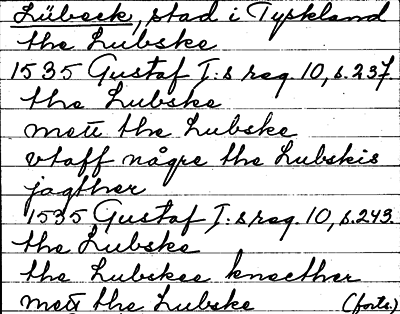 Lübeck, stad i Tyskland
the Lubske
1535 Gustaf I:s reg. 10, s. 237
the Lubske
mett the Lubske
vtaff någre the Lubskis
jagther
1535 Gustaf I:s reg. 10, s. 243.
the Lubske
the Lubskes knecther
mett the Lubske (forts.)